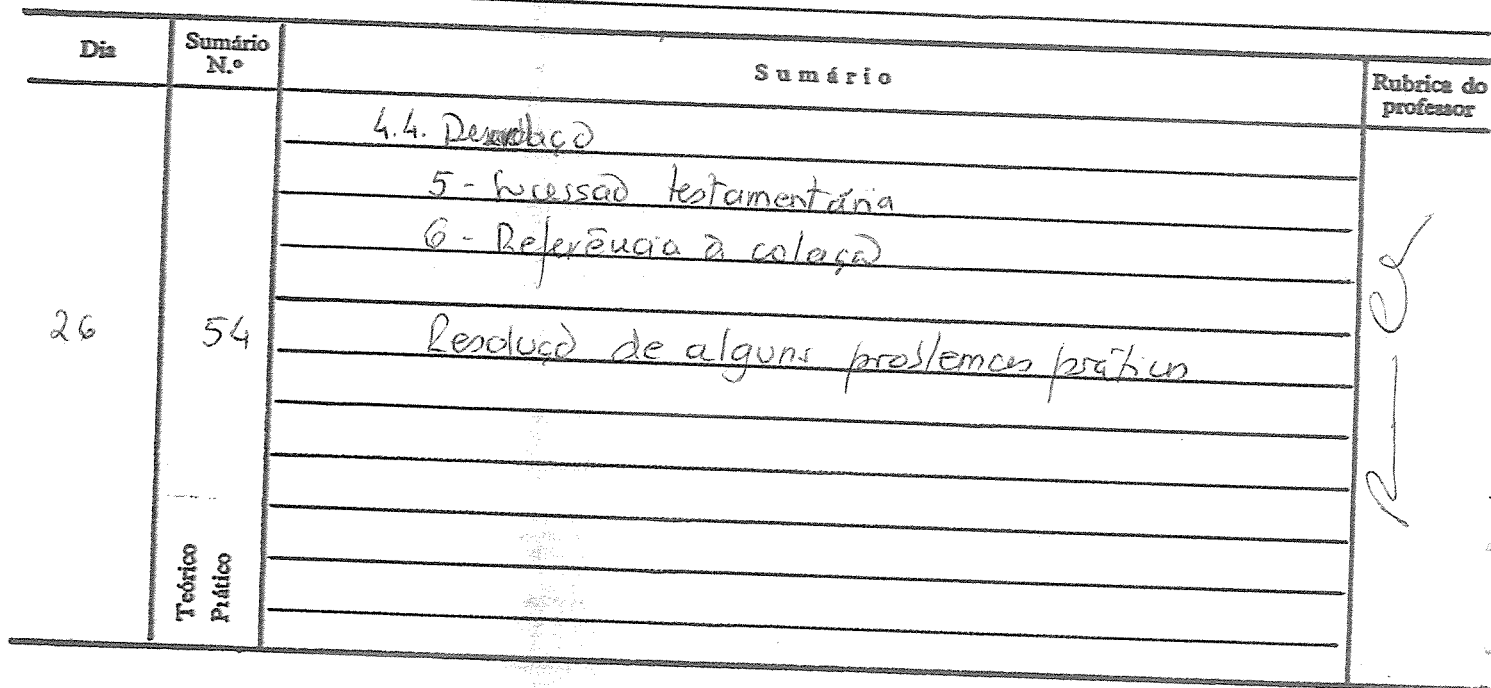 Dia
Sumário N.º
Sumário
Rubrica do professor
4.4.
5 - Sucessão testamentária
6 - Referência à colação
26
54
Resolução de alguns problemas práticos
Teórico
Prático